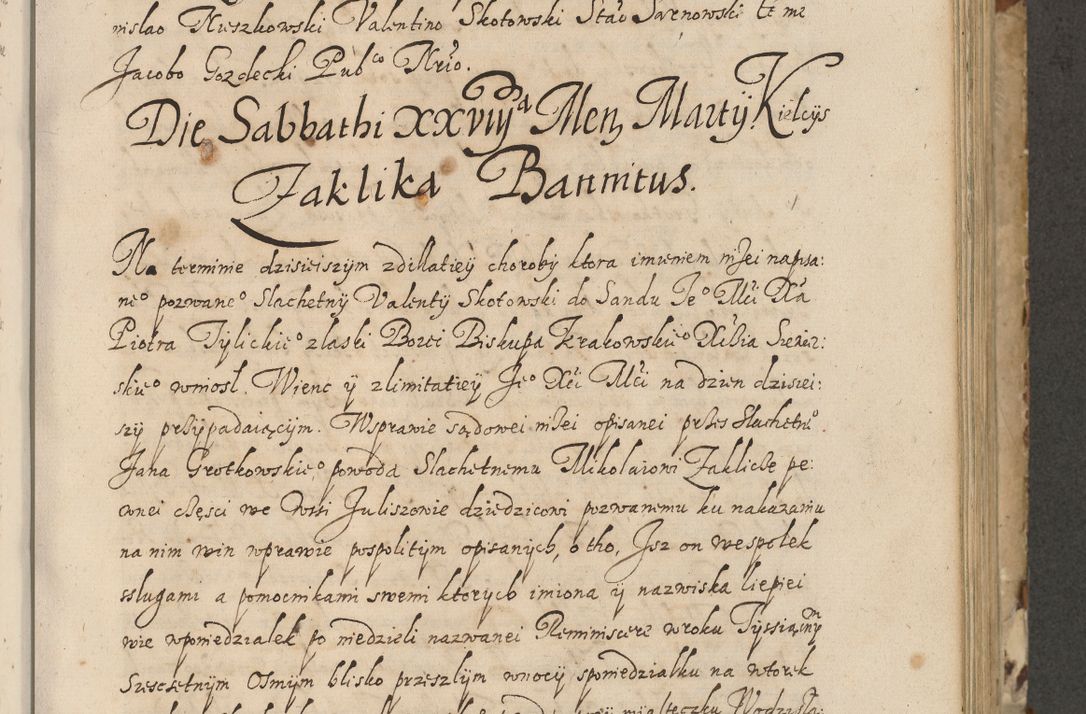 nislao Ruszkowski Valentino Skotowski Stao Sarnowski Et me
Jacobo Gozdecki Pubco Nrio.
Die Sabbathi XXVIIJa Men Martÿ Kielcÿs
Zaklika Bannitus.
Na terminie dzisieiszÿm zdillatieÿ chorobÿ ktora imieniem nizei napisa:
neo pozwaneo Slachetnÿ Valentÿ Skotowski do Sandu Jeo Mci Xa
Piotra Tÿlickieo zlaski Bozei Biskupa Krakowskieo Xcia Siewier:
skieo wniosl. Wienc ÿ zlimitatieÿ Jeo Xci Mci na dzien dzisiei:
szÿ przÿpadaiącÿm. Wsprawie sądowei nizei opisanei przes Slachetno
Jana Grotkowskieo powoda Slachetnemu Mikolaiowi Zaklicze pe:
wnei częsci we Wsi Juliszowie dziedzicowi pozwanemu ku nakazaniu
na nim win wprawie pospolitÿm opisanÿch, o tho, Jsz on wespolek
sslugami a pomocnikami swemi ktorÿch imiona ÿ nazwiska liepiei
wie wponiedzialek po niedzieli nazwanei Reminiscere wroku Tÿssiącnÿm
Szescsetnÿm Osmÿm blisko przeszlÿm wnocÿ sponiedzialku na wtorek
miasteczku Wodzisla: